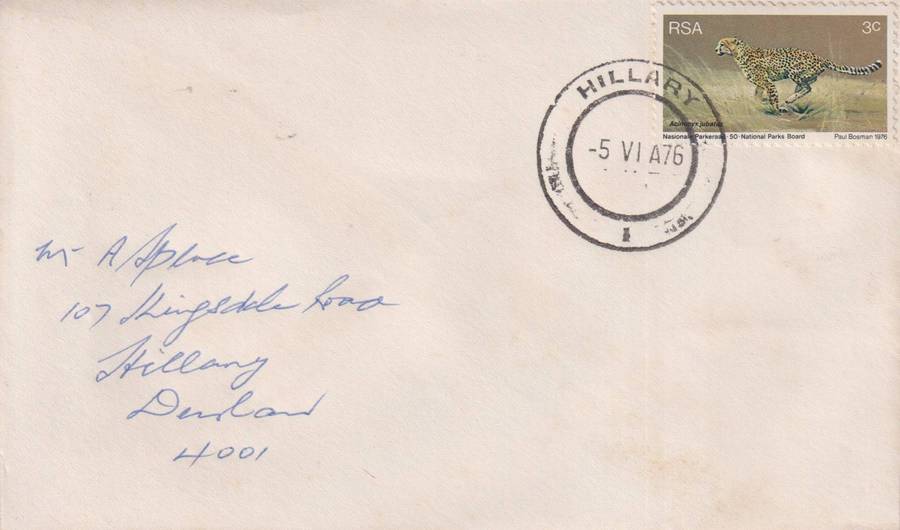 RSA 3c
Acinonyx jubatus
50 · National Parks Board Paul Bosman 1976
HILLARY
-5 VI A76
1
Mr A
107 Kingsdale Road
Hillary
Durban
4001